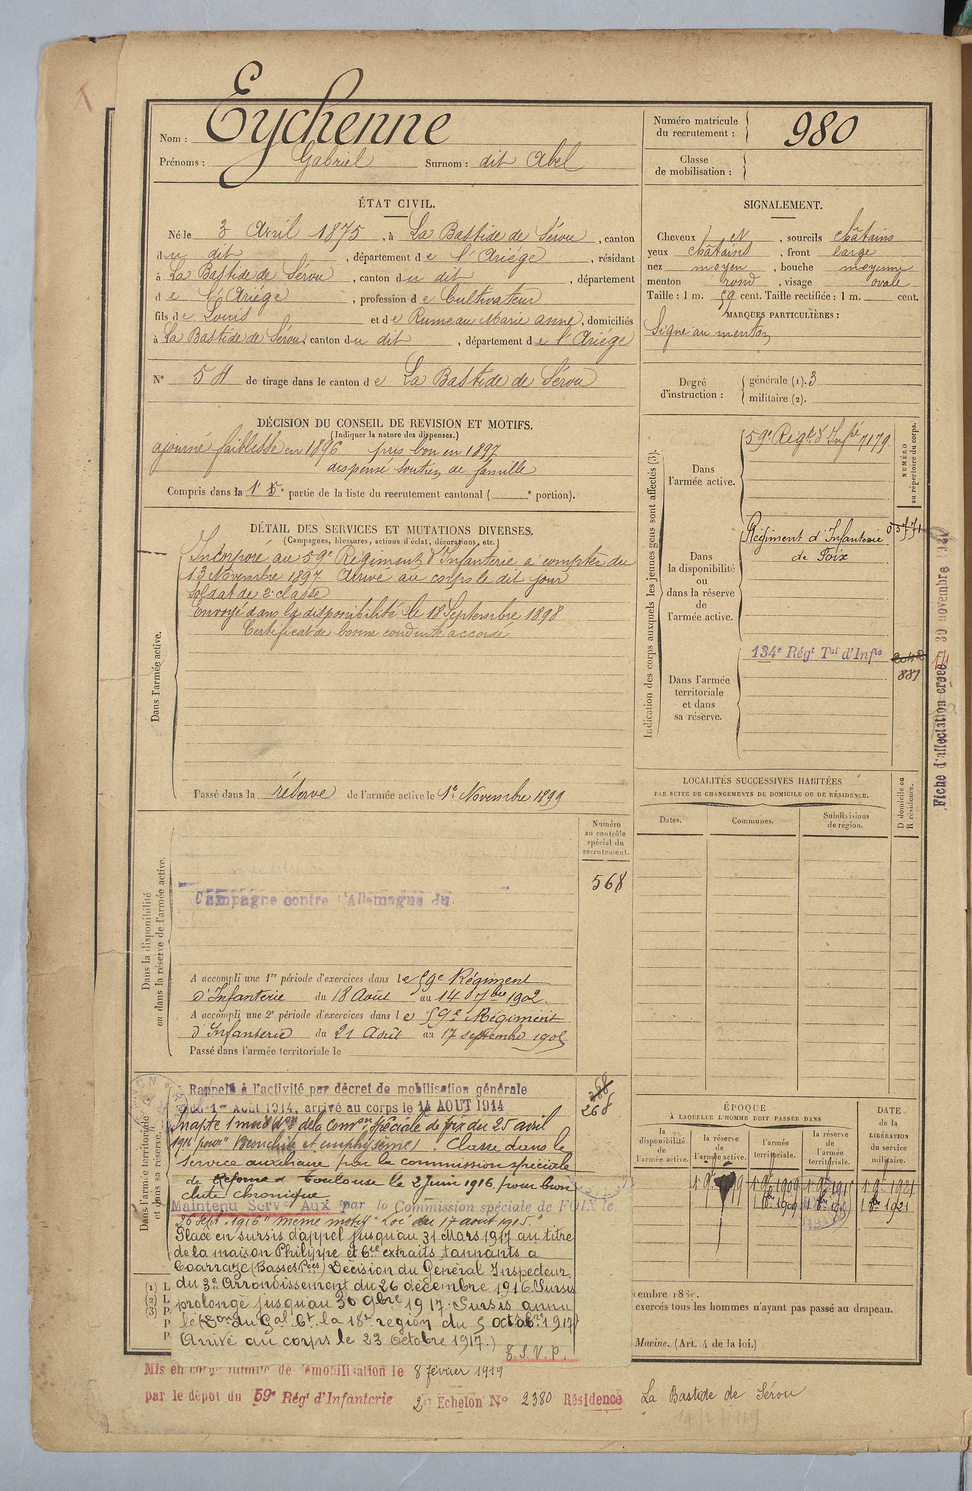 Nom : Eychenne
Prénoms : Gabriel Surnom : dit Abel
Numéro matricule du recrutement : 980
Classe de mobilisation :
ÉTAT CIVIL.
Né le 3 Avril 1875, à La Bastide de Sérou, canton
du dit, département de l'Ariège, résidant
à La Bastide de Sérou, canton du dit, département
de l'Ariège, profession de Cultivateur
fils de Louis et de Rumeau Marie Anne, domiciliés
à La Bastide de Sérou, canton du dit, département de l'Ariège
N° 54 de tirage dans le canton de La Bastide de Sérou
SIGNALEMENT.
Cheveux et N, sourcils châtains
yeux châtains, front large
nez moyen, bouche moyenne
menton rond, visage ovale
Taille : 1 m. 59 cent. Taille rectifiée : 1 m. cent.
MARQUES PARTICULÈRES :
Signe au menton
Degré d'instruction : générale (1). 3
militaire (2).
DÉCISION DU CONSEIL DE REVISION ET MOTIFS.
(Indiquer la nature des dispenses.)
ajourné faiblesse en 1896 pris bon en 1897
dispensé soutien de famille
Compris dans la 1e 5e partie de la liste du recrutement cantonal ( e portion).
DÉTAIL DES SERVICES ET MUTATIONS DIVERSES.
(Campagnes, blessures, actions d'éclat, décorations, etc.)
Dans l'armée active.
Incorporé au 59e Régiment d'Infanterie à compter du
13 Novembre 1897. Arrivé au corps le dit jour
soldat de 2e classe
Envoyé dans la disponibilité le 18 Septembre 1898
Certificat de bonne conduite accordé
Passé dans la réserve de l'armée active le 1er Novembre 1899
Indication des corps auxquels les jeunes gens sont affectés (3).
NUMÉRO au répertoire du corps.
Dans l'armée active.
59e Régt d'Infie 7179
Dans la disponibilité ou dans la réserve de l'armée active.
Régiment d'Infanterie
de Foix
Dans l'armée territoriale et dans sa réserve.
134e Régt Tal d'Infie
887
Fiche d'affectation créée 30 novembre
LOCALITÉS SUCCESSIVES HABITÉES
PAR SUITE DE CHANGEMENTS DE DOMICILE OU DE RÉSIDENCE.
Dates.
Communes.
Subdivisions de région.
D domicile ou R résidence.
Numéro au contrôle spécial du recrutement.
568
Dans la disponibilité ou dans la réserve de l'armée active.
Campagne contre l'Allemagne du
A accompli une 1re période d'exercices dans le 59e Régiment
d'Infanterie du 18 Août au 14 7bre 1902.
A accompli une 2e période d'exercices dans le 59e Régiment
d'Infanterie du 21 Août au 17 septembre 1905
Passé dans l'armée territoriale le
Dans l'armée territoriale et dans sa réserve.
268
Rappelé à l'activité par décret de mobilisation générale
du 1er Août 1914, arrivé au corps le 14 AOUT 1914
Spéciale de Foix du 25 avril
1916 pour "Bronchite et emphysème". Classé dans le
service auxiliaire par la commission spéciale
de Réforme de Toulouse le 2 Juin 1916, pour bron
chite chronique.
Maintenu Serve Aux par la Commission spéciale de FOIX le
26 sept. 1916 "même motif" Loi du 17 août 1915.
Placé en sursis d'appel jusqu'au 31 Mars 1917 au titre
de la maison Philippe et Cie extraits tannants à
Coarraze (Basses Pées) Décision du Général Inspecteur
du 3e Arrondissement du 26 décembre 1916. Sursis
prolongé jusqu'au 30 9bre 1917. Sursis annu
lé la 18e région du 5 octobre 1917
Arrivé au corps le 23 Octobre 1917.
T.S.V.P.
Mis en congé illimité de démobilisation le 8 février 1919
par le dépôt du 59e Régt d'Infanterie 2e Echelon N° 2380 Résidence La Bastide de Sérou
ÉPOQUE
À LAQUELLE L'HOMME DOIT PASSER DANS
la disponibilité de l'armée active.
la réserve de l'armée active.
l'armée territoriale.
la réserve de l'armée territoriale.
DATE de la LIBÉRATION du service militaire.
exercés tous les hommes n'ayant pas passé au drapeau.
Marine. (Art. 4 de la loi.)